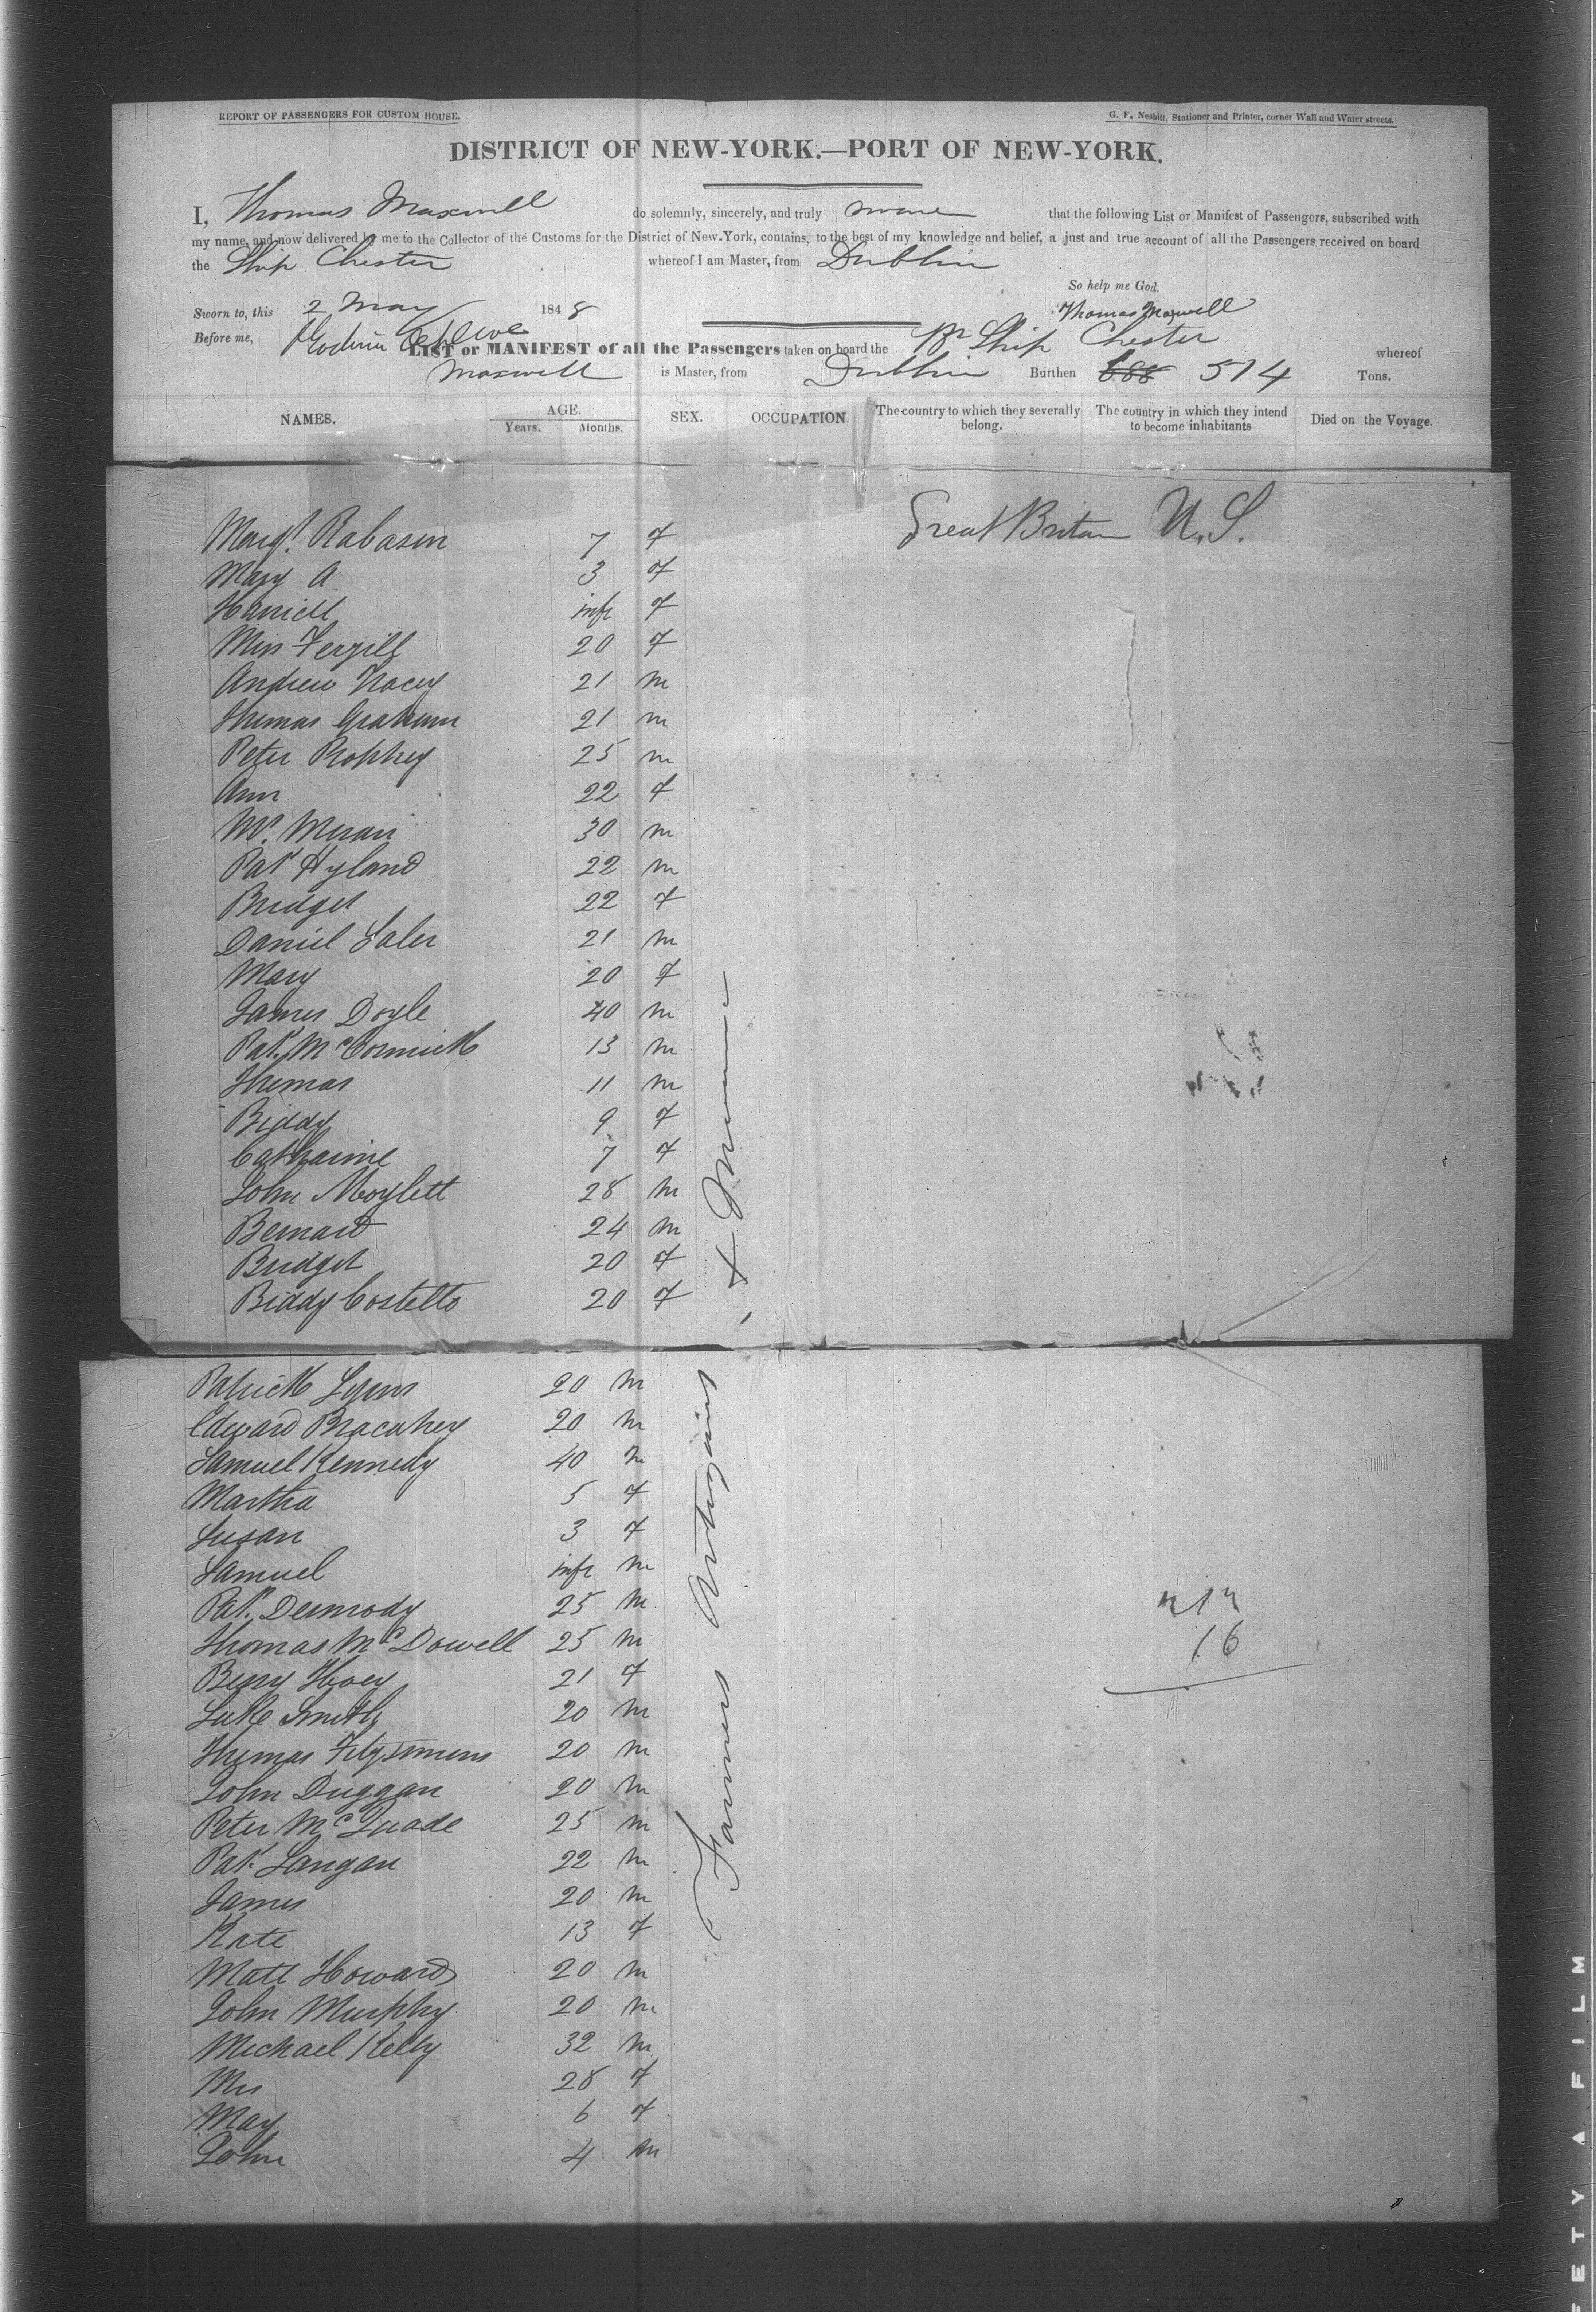 REPORT OF PASSENGERS FOR CUSTOM HOUSE.
G. F. Nesbitt, Stationer and Printer, corner Wall and Water streets.
DISTRICT OF NEW-YORK.—PORT OF NEW-YORK.
I, Thomas Maxwell do solemnly, sincerely, and truly swear that the following List or Manifest of Passengers, subscribed with
my name, and now delivered by me to the Collector of the Customs for the District of New-York, contains, to the best of my knowledge and belief, a just and true account of all the Passengers received on board
the Ship Chester whereof I am Master, from Dublin
So help me God.
Sworn to, this 2 May 1848 Thomas Maxwell
Before me,
LIST or MANIFEST of all the Passengers taken on board the Br Ship Chester whereof
Maxwell is Master, from Dublin Burthen 688 514 Tons.
NAMES. AGE. Years. Months. SEX. OCCUPATION. The country to which they severally belong. The country in which they intend to become inhabitants Died on the Voyage.
Margt. Rabasen 7 f Great Britain U.S.
Mary A 3 f
Harriett inft f
Miss Fergill 20 f
Andrew Nacey 21 m
Thomas Graham 21 m
Peter Prophey 25 m
Ann 22 f
30 m
Pat Hyland 22 m
Bridget 22 f
Daniel Laler 21 m
Mary 20 f
James Doyle 40 m
Pat. McCormick 13 m
Thomas 11 m
Biddy 9 f
Catharine 7 f
John Moylett 28 m
Bernard 24 m
Bridget 20 f
Biddy Costello 20 f
Patrick Lyons 20 m
Edward Bracahey 20 m
Samuel Kennedy 40 m
Martha 5 f
Susan 3 f
Samuel inft m
Pat. Dermody 25 m
Thomas McDowell 25 m
Bessy Hoey 21 f
Luke Smith 20 m
Thomas Fitzsimons 20 m
John Duggan 20 m
Peter McQuade 25 m
Pat. Langan 22 m
James 20 m
Kate 13 f
Matt Howard 20 m
John Murphy 20 m
Michael Kelly 32 m
Mrs 28 f
May 6 f
John 4 m
Farmers Artizains &
16
ETY A FILM